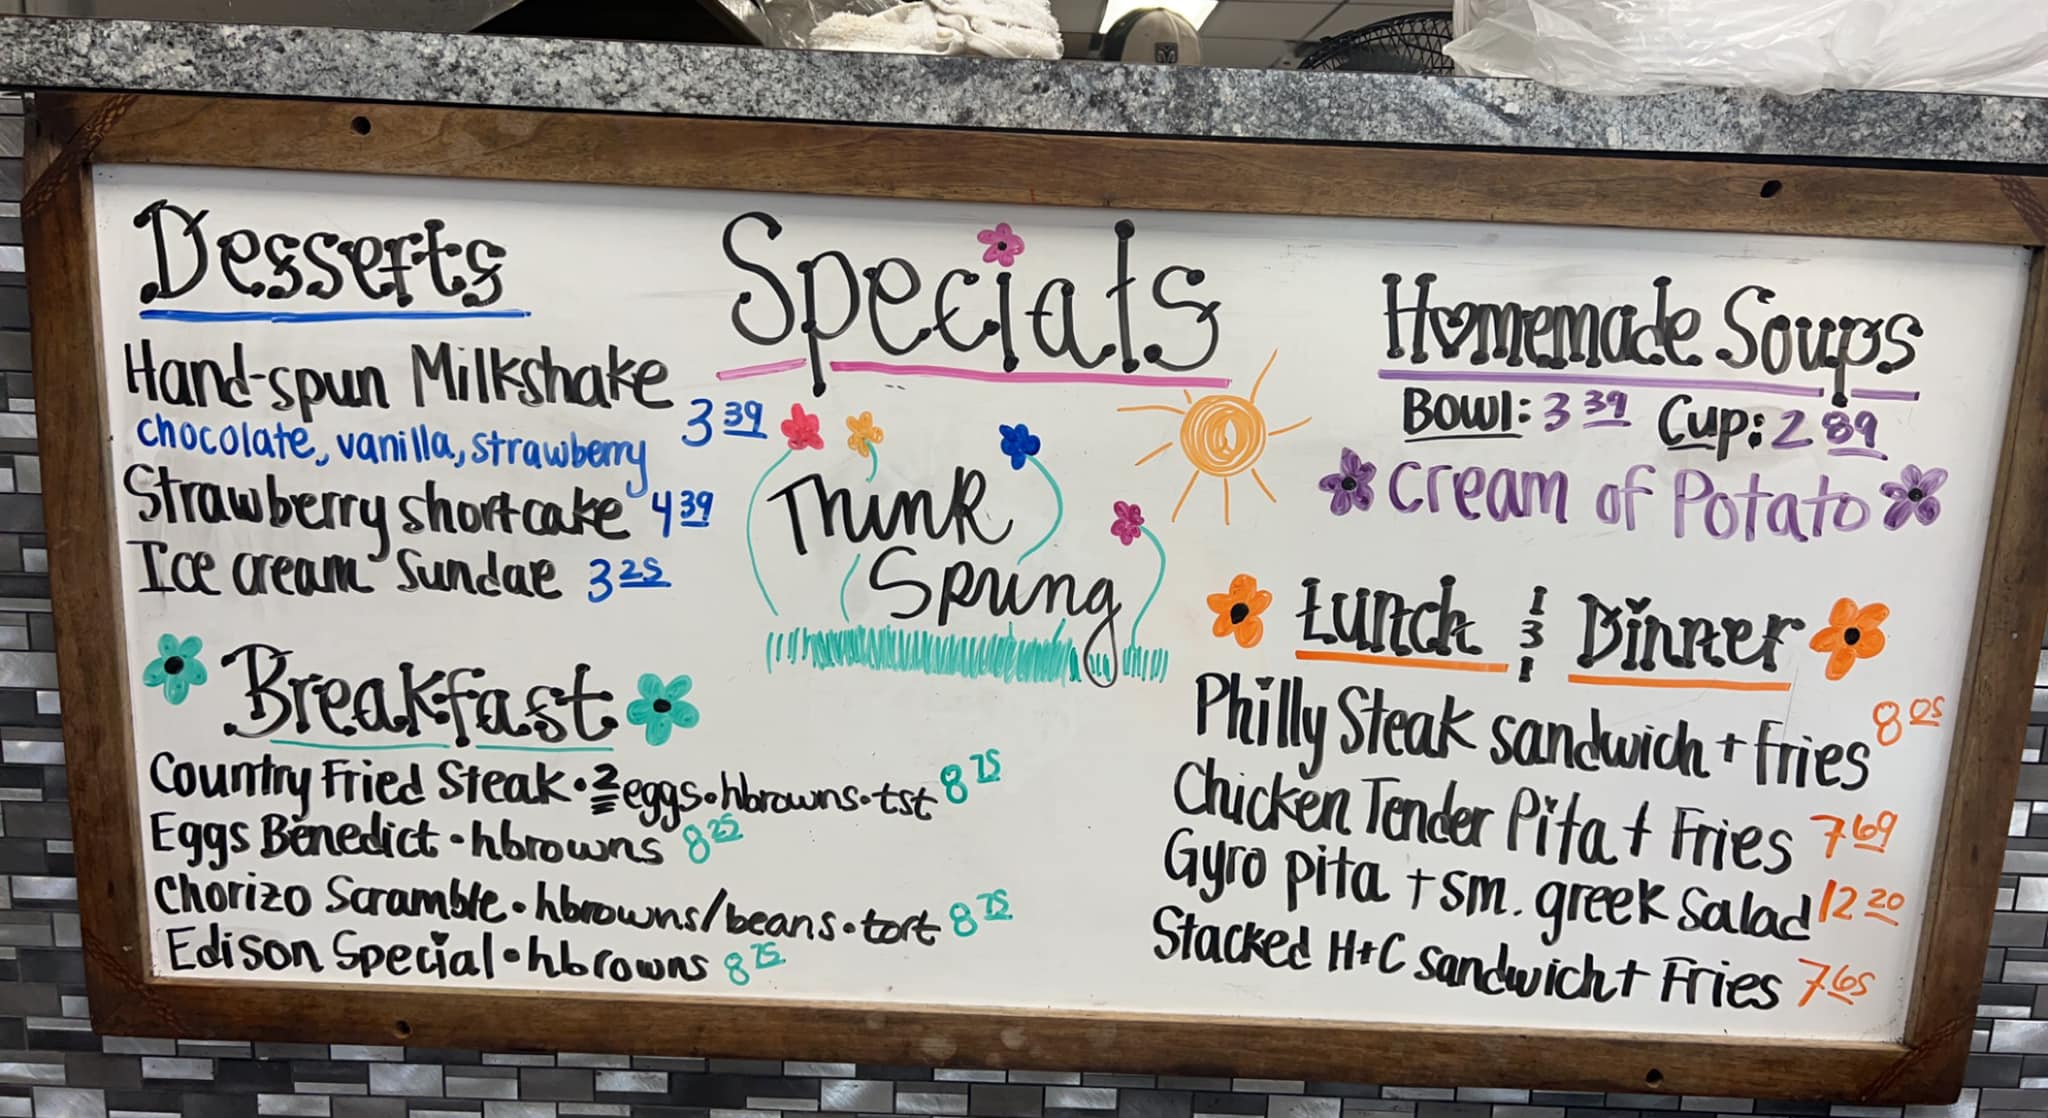 Specials
Desserts
Hand-spun Milkshake 3 39
chocolate, vanilla, strawberry
Strawberry shortcake 4 39
Ice cream Sundae 3 25
Think
Spring
Breakfast
Country Fried Steak • 2 eggs • hbrowns • tst 8 75
Eggs Benedict • hbrowns 8 25
Chorizo Scramble • hbrowns/beans • tort 8 75
Edison Special • hbrowns 8 75
Homemade Soups
Bowl: 3 39 Cup: 2 89
Cream of Potato
Lunch & Dinner
Philly Steak sandwich + fries 8 05
Chicken Tender Pita + Fries 7 69
Gyro pita + sm. greek Salad 12 20
Stacked H+C sandwich + Fries 7 65